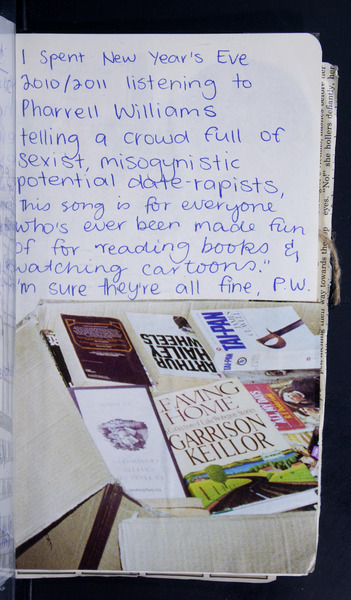 I Spent New Year's Eve
2010/2011 listening to
Pharrell Williams
telling a crowd full of
sexist, misogynistic
potential date-rapists,
"This song is for everyone
who's ever been made fun
of for reading books &
watching cartoons."
I'm sure they're all fine, P.W.
eyes. "No!" she hollers defiantly, her
way towards the
ARTHUR
HAILEY
WHEELS
TAI-PAN
LEAVING
HOME
A Collection of Lake Wobegon Stories
GARRISON
KEILLOR